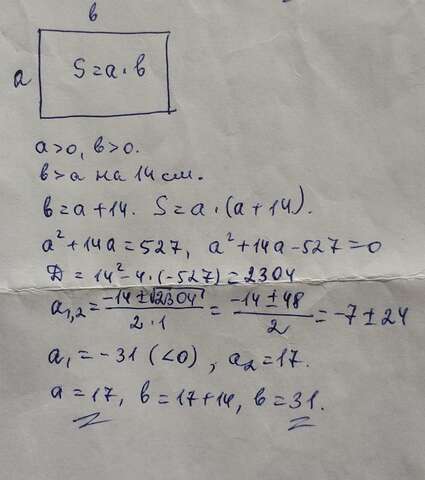 в
a S = a · в
a>0, в>0.
в>a на 14 см.
в = a + 14. S = a · (a + 14).
a² + 14a = 527, a² + 14a − 527 = 0
D = 14² − 4 · (−527) = 2304
a₁,₂ = (−14 ± √2304) / (2 · 1) = (−14 ± 48) / 2 = −7 ± 24
a₁ = −31 (<0), a₂ = 17.
a = 17, в = 17 + 14, в = 31.